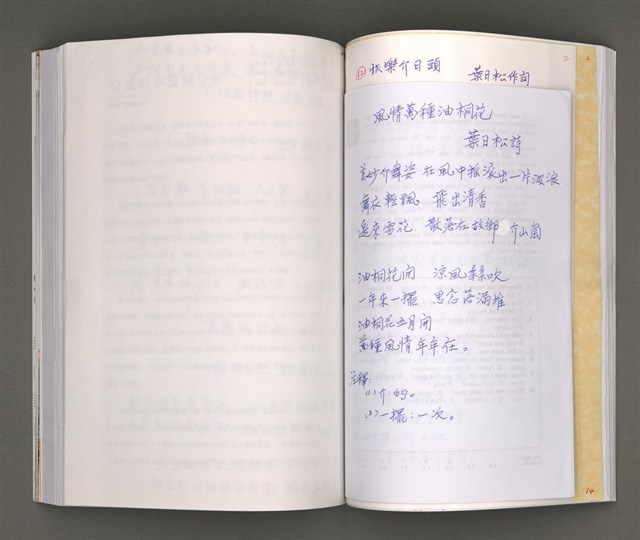 (12) 快樂介日頭 葉日松作詞
2
風情萬種油桐花
葉日松詩
美妙介舞姿 在風中搖滾出一片波浪
舞衣輕飄 飛出清香
散落在故鄉 介山崗
油桐花開 涼風來吹
一年來一擺 思念落滿堆
油桐花五月開
萬種風情年年在。
注釋:
(1)介:的。
(2)一擺:一次。
14